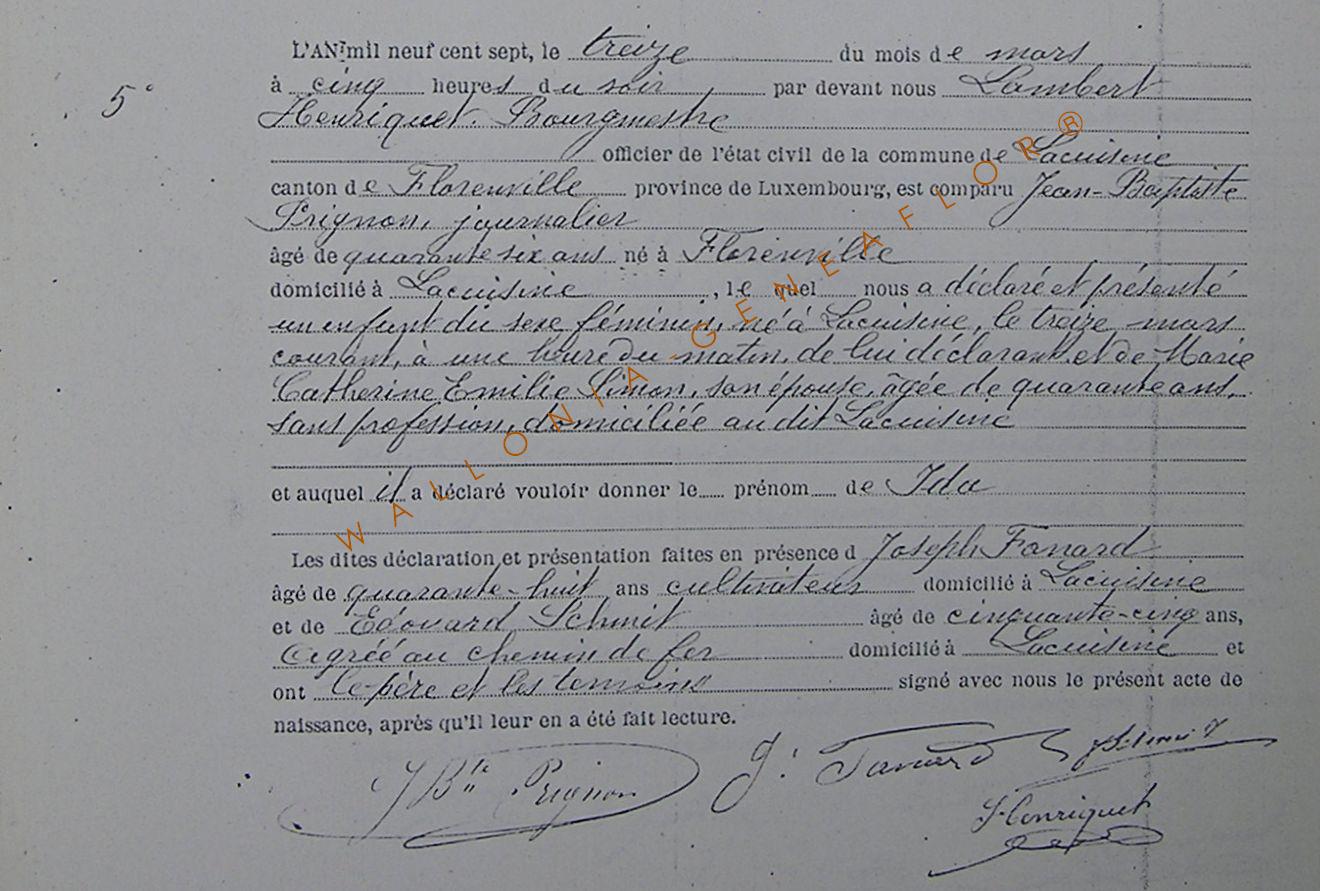 L'AN mil neuf cent sept, le treize du mois de mars
5° à cinq heures du soir par devant nous Lambert
Henriquet Bourgmestre
officier de l'état civil de la commune de Lacuisine
canton de Florenville province de Luxembourg, est comparu Jean-Baptiste
Prignon, journalier
âgé de quarante six ans né à Florenville
domicilié à Lacuisine, le quel nous a déclaré et présenté
un enfant du sexe féminin, né à Lacuisine, le treize mars
courant, à une heure du matin, de lui déclarant et de Marie
Catherine Emilie Simon, son épouse, âgée de quarante ans,
sans profession, domiciliée au dit Lacuisine
et auquel il a déclaré vouloir donner le prénom de Ida
Les dites déclaration et présentation faites en présence d Joseph Fanard
âgé de quarante-huit ans cultivateur domicilié à Lacuisine
et de Edouard Schmit âgé de cinquante-cinq ans,
Agréé au chemin de fer domicilié à Lacuisine et
ont le père et les temoins signé avec nous le présent acte de
naissance, après qu'il leur en a été fait lecture.
J Bte Prignon J. Fanard
Henriquet
WALLONIA-GENEAFLOR®